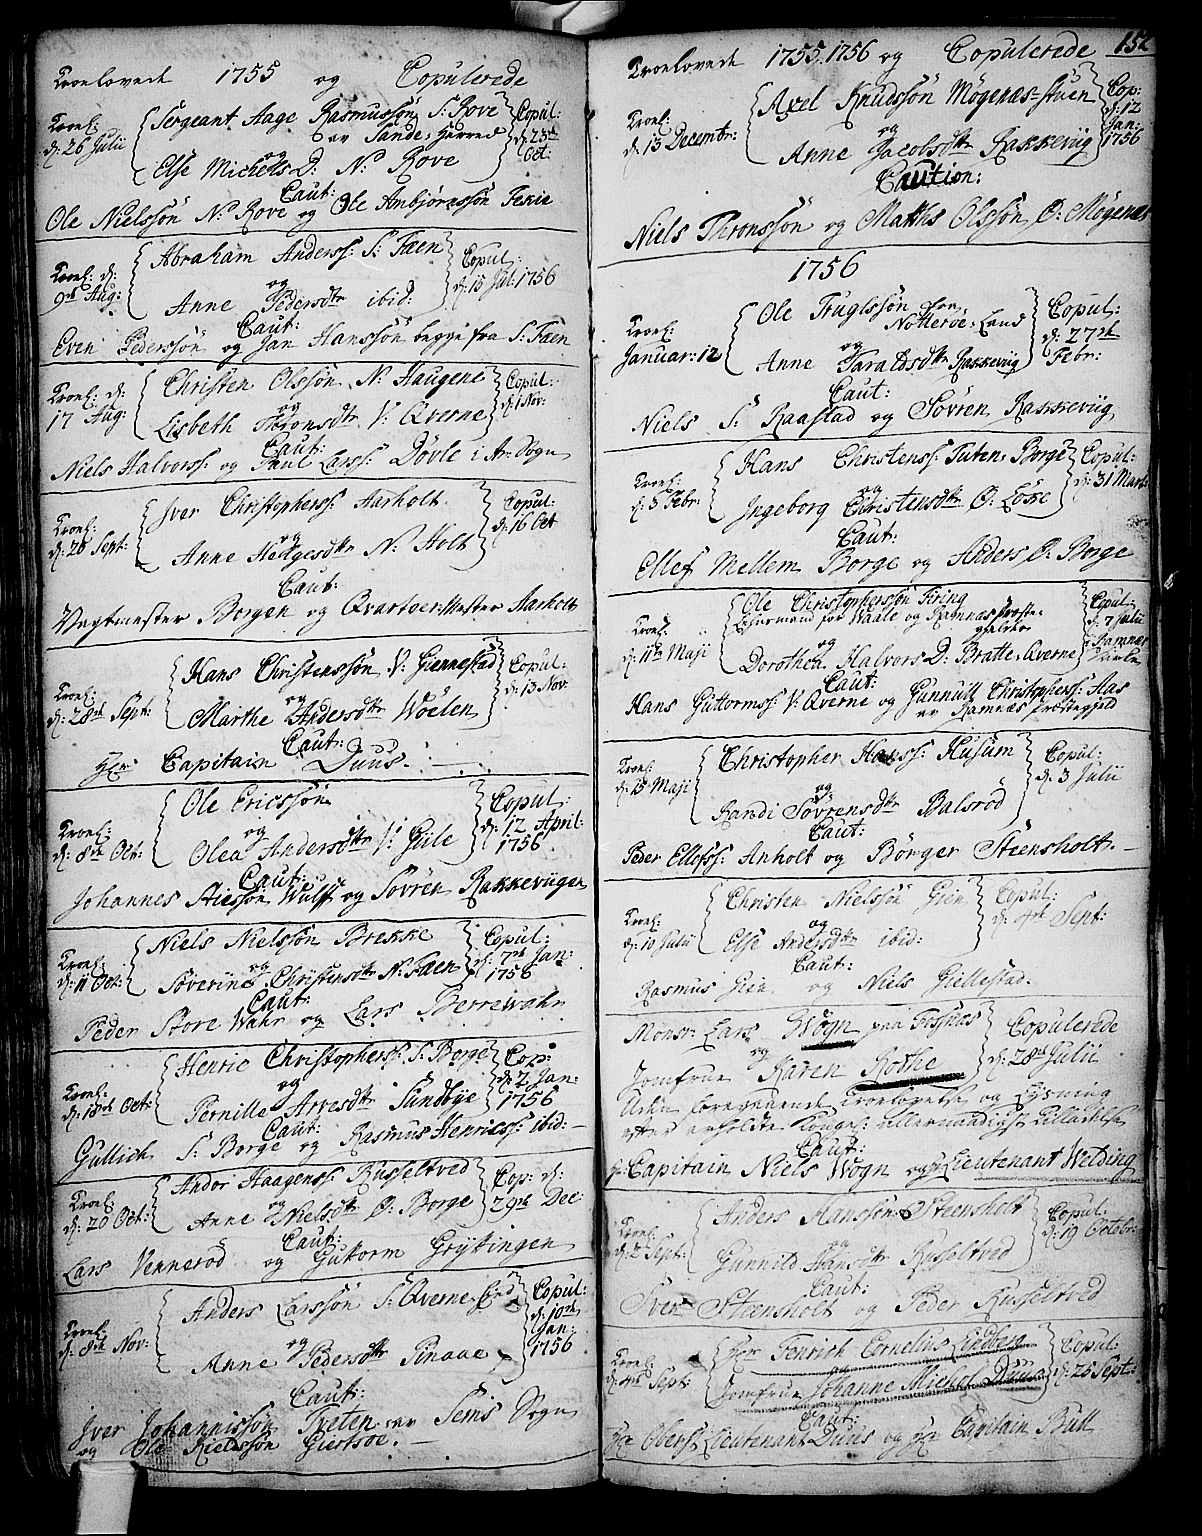 Troelovede 1755 og Copulerede
Troel: d: 26 Julii
Sergeant Aage Rasmussøn S: Rove
av Sande-Herred
og
Else Michels D: N: Rove
Copul: d: 23de Oct:
Caut:
Ole Nielssøn N: Rove og Ole Anbjørnssøn
Troel: d: 9de Aug:
Abraham Anderss: S: Fæen
og
Anne Pedersdtr ibid:
Copul: d: 15 Jul: 1756
Caut:
Even Pederssøn og Jan Hanssøn begge fra S: Fæen
Troel: d: 17 Aug:
Christen Olssøn N: Haugene
og
Lisbeth Thronsdtr V: Qverne
Copul: d: 1 Nov:
Caut:
Niels Halvorss: og Paul Larss: Døvle i Ar: Sogn
Troel: d: 26 Sept:
Iver Christopherss: Aarholt
og
Anne Helgesdtr N: Holt
Copul: d: 16 Oct
Caut:
Vagtmester Borgen og Qvarteermester Aarholt
Troel: d: 28de Sept:
Hans Christenssøn V: Giennestad
og
Marthe Andersdtr Woelen
Copul: d: 13 Nov:
Caut:
Hr: Capitain Duus.
Troel: d: 8de Oct:
Ole Ericssøn
og
Olea Andersdtr V: Giile
Copul: d: 12 April: 1756
Caut:
Johannes Stiessøn Wulff og Søvren Rakkeviigen
Troel: d: 11 Oct:
Niels Nielssøn Brekke
og
Søverine Christensdtr N: Fæen
Copul: d: 7de Jan: 1756
Caut:
Peder Store Wahr og Lars Berrewahr
Troel: d: 18de Oct:
Henric Christopherss: S: Borge
og
Pernille Arvesdtr Sundbye
Cop: d: 2 Jan: 1756
Caut:
Gullich S: Borge og Rasmus Henricss: ibid:
Troel: d: 20 Oct:
Andor Haagenss: Russeltved
og
Anne Nielsdtr Ø: Borge
Cop: d: 29de Dec:
Caut:
Lars Vennerød og Guttorm Grytingen
Troel: d: 8de Nov:
Anders Larssøn S: Qverne
og
Anne Pedersdtr Pinaae
Copul: d: 10de Jan: 1756
Caut:
Iver Johannissøn Tveten av Sems Sogn
og Ole Kieldssøn Giertsøe.
152
Troelovede 1755, 1756 og Copulerede
Troel: d: 15 Decembr:
Axel Knudssøn Møgenæs-stuen
og
Anne Jacobsdtr Rakkeviig
Cop: d: 12 Jan: 1756
Caution:
Niels Thronssøn og Matths Olssøn Ø: Møgenæs
1756
Troel: Januar: 12
Ole Truglssøn fra Nøtterøe-Land
og
Anne Taraldsdtr Rakkeviig
Copul: d: 27de Febr:
Caut:
Niels S: Raastad og Søvren Rakkeviig
Troel: d: 5 Febr:
Hans Christenss: Tuten-Borge
og
Ingeborg Christensdtr Ø: Løkke
Copul: d: 31 Mart:
Caut:
Ellef Mellem Borge og Anders Ø: Borge
Troel: d: 11te Maji
Ole Christopherssøn Firing
Lehnsmand for Waale og Ramnæs Præste-
gjelder
og
Dorothea Halvors D: Bratte-Qverne
Copul: d: 7 Julii Ramnæs Kirke
Caut:
Hans Guttormss: V: Qverne og Gunnull Christopherss: Aas
av Ramnæs Præstegield
Troel: d: 15 Maji
Christopher Hanss: Husum
og
Randi Søvrensdtr Balsrød
Copul: d: 3 Julii
Caut:
Peder Ellefss: Anholt og Børger Steensholt.
Troel: d: 10 Julii
Christen Nielssøn Gien
og
Else Andersdtr ibid:
Copul: d: 4de Sept:
Caut:
Rasmus Gien og Niels Giellestad.
Monsr: Lars Wøgn paa Fossnæs
og
Jomfrue Karen Rothe
Copulerede d: 28de Julii
Uden foregaaende Troelovelse og Lysning
efter erholdte Kongel: allernaadigste Tilladelse
Caut:
Hr: Capitain Niels Wøgn og Hr: Lieutenant Welding
Troel: d: 2 Sept:
Anders Hanssøn Steensholt
og
Gunnild Hansdtr Russeltved
Copul: d: 19 Octobr:
Caut:
Sven Steensholt og Peder Russeltved
Troel: d: 4de Sept:
Herr Fenrich Cornelius Lindberg
og
Jomfrue Johanne Michel Duus
Copul: d: 25 Sept:
Caut:
Hr: Oberst-Lieutenant Duus og Hr: Capitain Bull